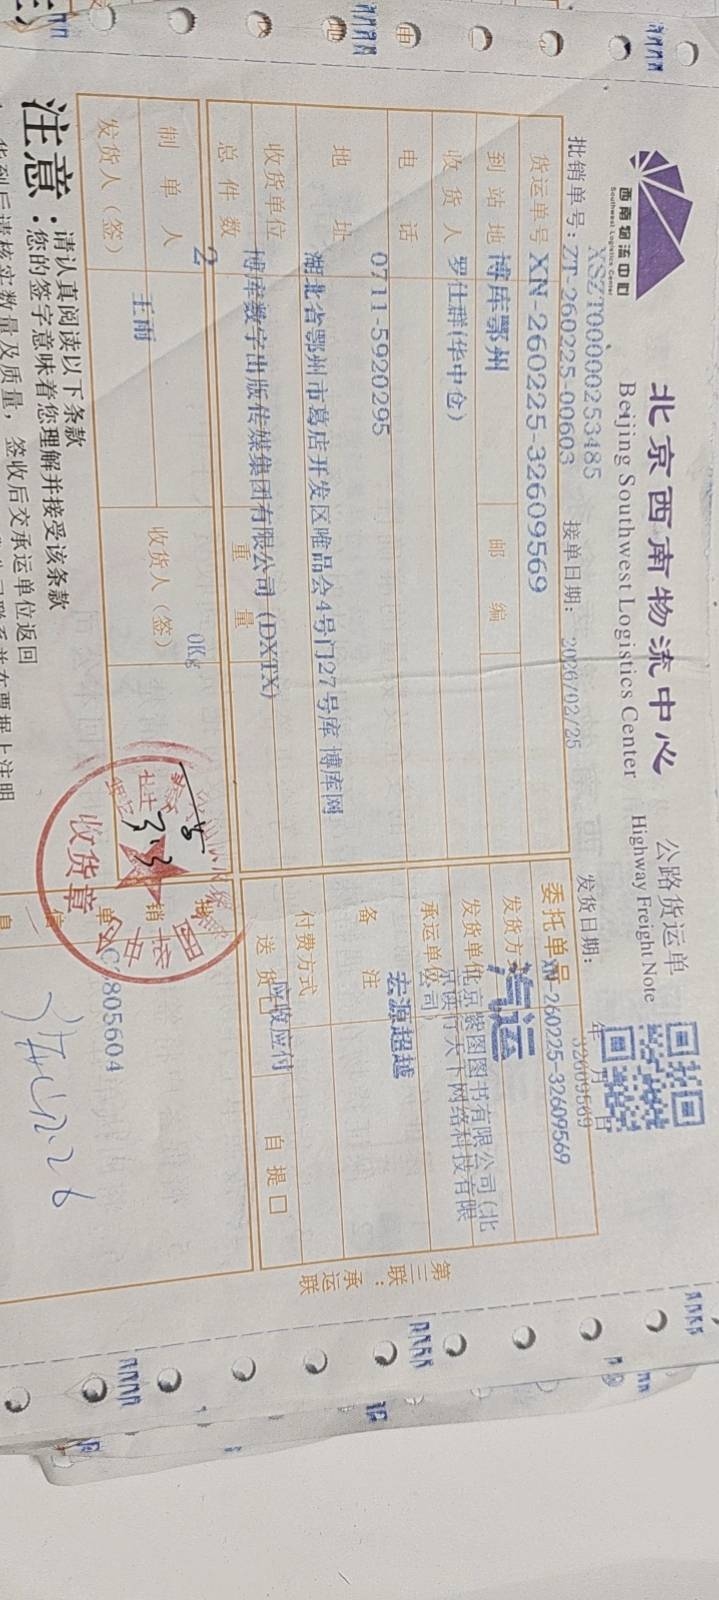 西南物流中心
Southwest Logistics Center
北京西南物流中心
Beijing Southwest Logistics Center
公路货运单
Highway Freight Note
XSZT00000253485
32609569
批销单号：ZT-260225-00603
接单日期： 2026/02/25
发货日期： 年 月 日
货运单号 XN-260225-32609569
委托单号 XN-260225-32609569
到站地 博库鄂州
邮编
发货方式 汽运
收货人 罗仕群(华中仓)
发货单位 北京紫图图书有限公司(北京读行天下网络科技有限公司)
电话 0711-5920295
承运单位 宏源超越
地址 湖北省鄂州市葛店开发区唯品会4号门27号库 博库网
备注
收货单位 博库数字出版传媒集团有限公司(DXTX)
付费方式 应收应付
总件数 2
重量 0Kg
送货口
自提口
制单人 王雨
收货人（签）
发货人（签）
C2805604
收货章
第三联：承运联
注意：
请认真阅读以下条款
您的签字意味着您理解并接受该条款
货到后请核实数量及质量，签收后交承运单位返回